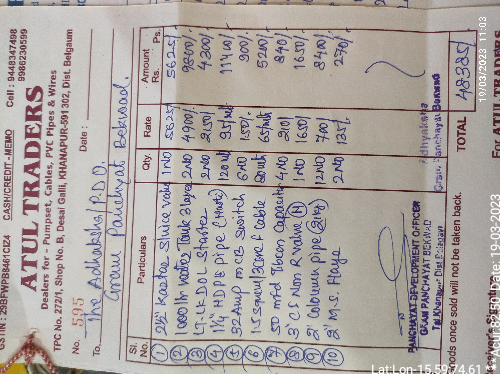 GSTIN: 29BFWPB8461C1Z4 CASH/CREDIT-MEMO Cell: 9448347498
9986230599
ATUL TRADERS
Dealers for - Pumpset, Cables, PVC Pipes & Wires
TPC No. 272/1, Shop No. B, Desai Galli, KHANAPUR-591302, Dist. Belgaum
No. 595 Date:
To, The Adhaksha/P.D.O.
Gram Panchyat Bekwad.
Sl. No. Particulars Qty. Rate Amount Rs. Ps.
1 2½" Kaster Sluice valve 1 NO 5625/- 5625/-
2 1000 ltr water Tank 3 layer 2 NO 4900/- 9800/-
3 LT-LK DOL Starter 2 NO 2150/- 4300/-
4 1¼" HDPE pipe 120 mt 95/mt 11400/-
5 32 Amp MCB Switch 6 NO 150/- 900/-
6 1.5 Sqmm/3 core F Cable 80 mt 65/mt 5200/-
7 50 mfd Tocon Capacitor 4 NO 210/- 840/-
8 3" CI Non R valve (H) 1 NO 1650/- 1650/-
9 2" Coloumn pipe 12 NO 700/- 8400/-
10 2" M.S. 2 NO 135/- 270/-
PANCHAYAT DEVELOPMENT OFFICER
GRAM PANCHAYAT BEKWAD
Tal. Khanapur Dist. Belagavi
Adhyaksha
Gram Panchayat Bekwad
TOTAL 48385/-
Goods once sold will not be taken back.
For ATUL TRADERS
19/03/2023 11:03
Date: 19-03-2023
Lat:Lon-15.59:74.61